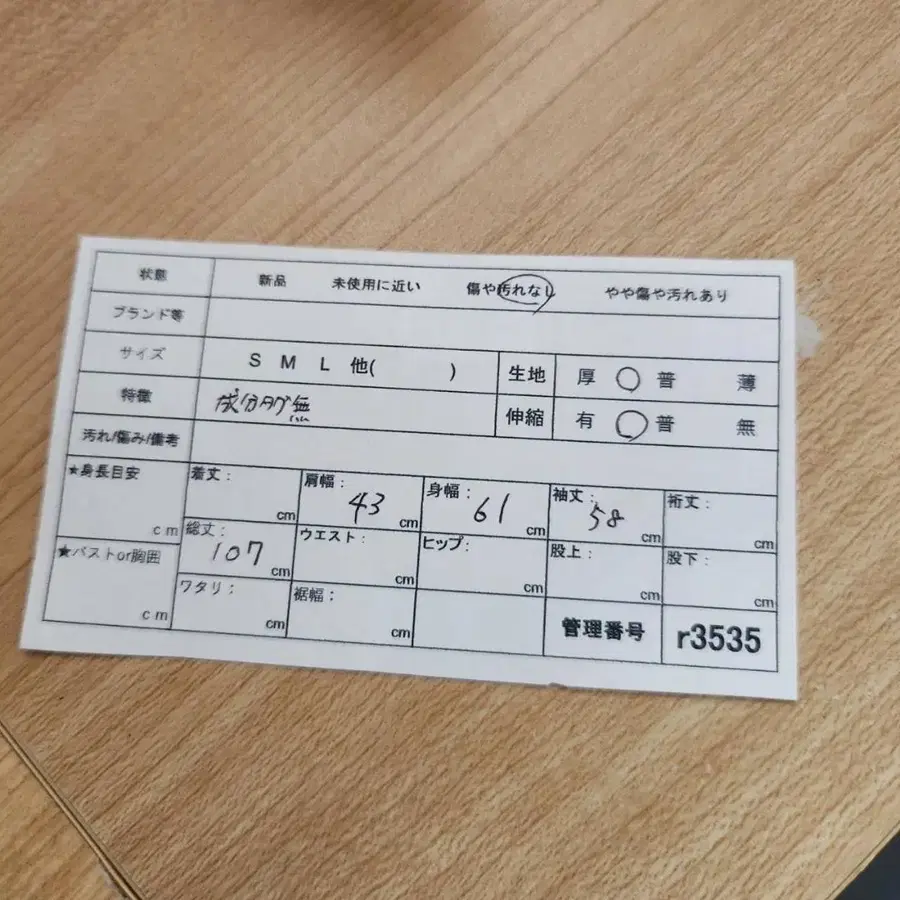 状態 新品 未使用に近い 傷や汚れなし やや傷や汚れあり
ブランド等
サイズ S M L 他( ) 生地 厚 普 薄
特徴 成分タグ無 伸縮 有 普 無
汚れ/傷み/備考
★身長目安 cm 着丈: cm 肩幅: 43 cm 身幅: 61 cm 袖丈: 58 cm 裄丈: cm
★バストor胸囲 cm 総丈: 107 cm ウエスト: cm ヒップ: cm 股上: cm 股下: cm
ワタリ: cm 裾幅: cm 管理番号 r3535